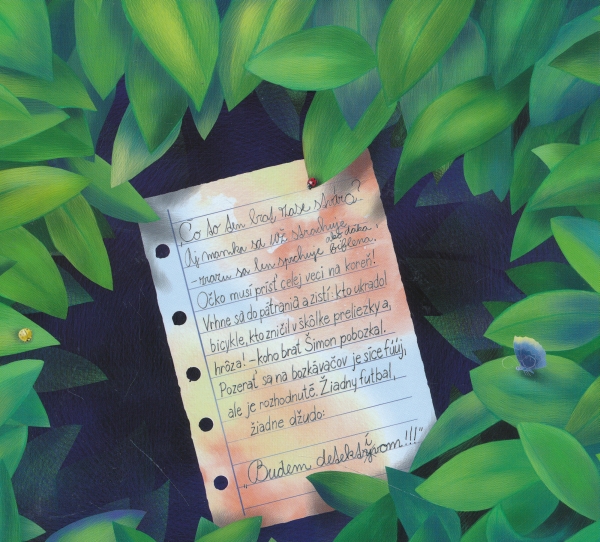 „Čo so ten brat zase stvoril?
Aj mamka sa už strachuje,
ako ťažko
- zrazu sa len spichuje
Očko musí prísť celej veci na koreň!
Vrhne sa do pátrania a zistí: kto ukradol
bicykle, kto zničil v škôlke preliezky a,
hrôza! - koho brat Šimon pobozkal.
Pozerať sa na bozkávačov je síce fúúúj,
ale je rozhodnuté. Žiadny futbal,
žiadne džudo:
„Budem detektívom!!!“